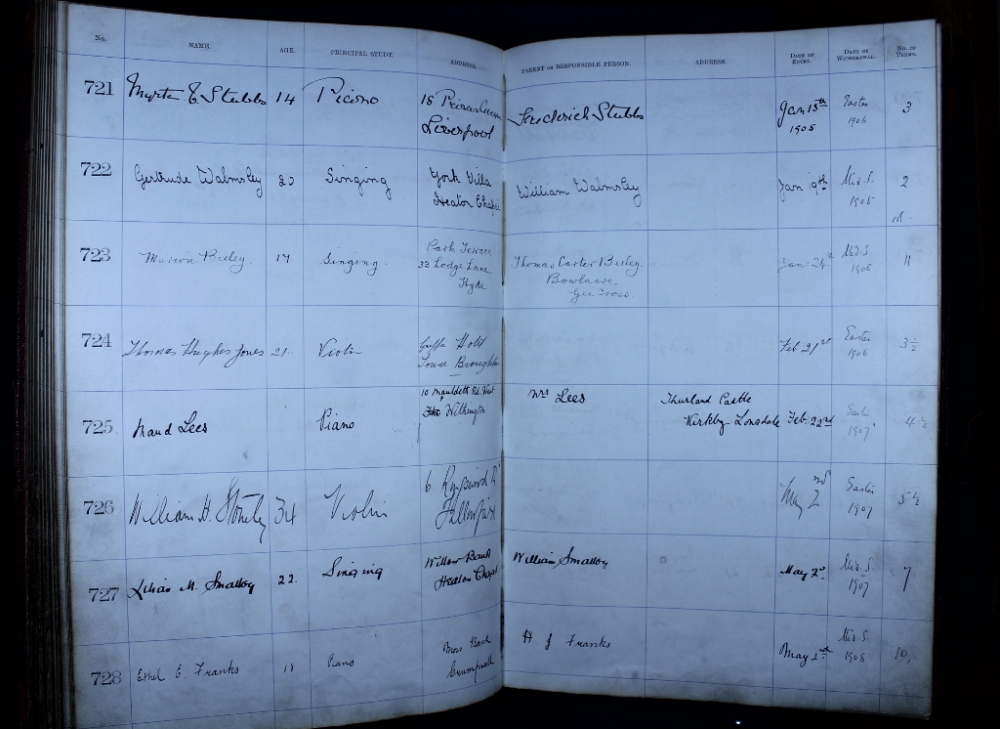 No. NAME. AGE. PRINCIPAL STUDY. ADDRESS. PARENT OR RESPONSIBLE PERSON. ADDRESS. DATE OF ENTRY. DATE OF WITHDRAWAL. No. OF TERMS.
721 Myrta E Stubbs 14 Piano 18 Princes Liverpool Frederick Stubbs Jan 15th 1905 Easter 1906 3
722 Gertrude Walmsley 20 Singing York Villa Heaton Chapel William Walmsley Jan 9th Mid. S. 1905 2
723 Marion Beeley 17 Singing Park Terrace
33 Lodge Lane
Hyde Thomas Carter Beeley
Bowlacre
Gee Cross Jan 24th Mid. S. 1908 11
724 Thomas Hughes Jones 21 Violin Holt
Lower Broughton Feb 21st Easter 1906 3½
725 Maud Lees Piano 10 Mauldeth Rd West
Withington Mrs Lees Thurland Castle
Kirkby Lonsdale Feb. 22nd 1907 4½
726 William H. 34 Violin 6 May 2nd Easter 1907 5½
727 Lilias M. Smalley 22 Singing Willow Bank
Heaton Chapel William Smalley May 2nd Mid. S. 1907 7
728 Ethel E. Franks Piano Moss Bank
Crumpsall H J Franks May 2nd Mid. S. 1908 10